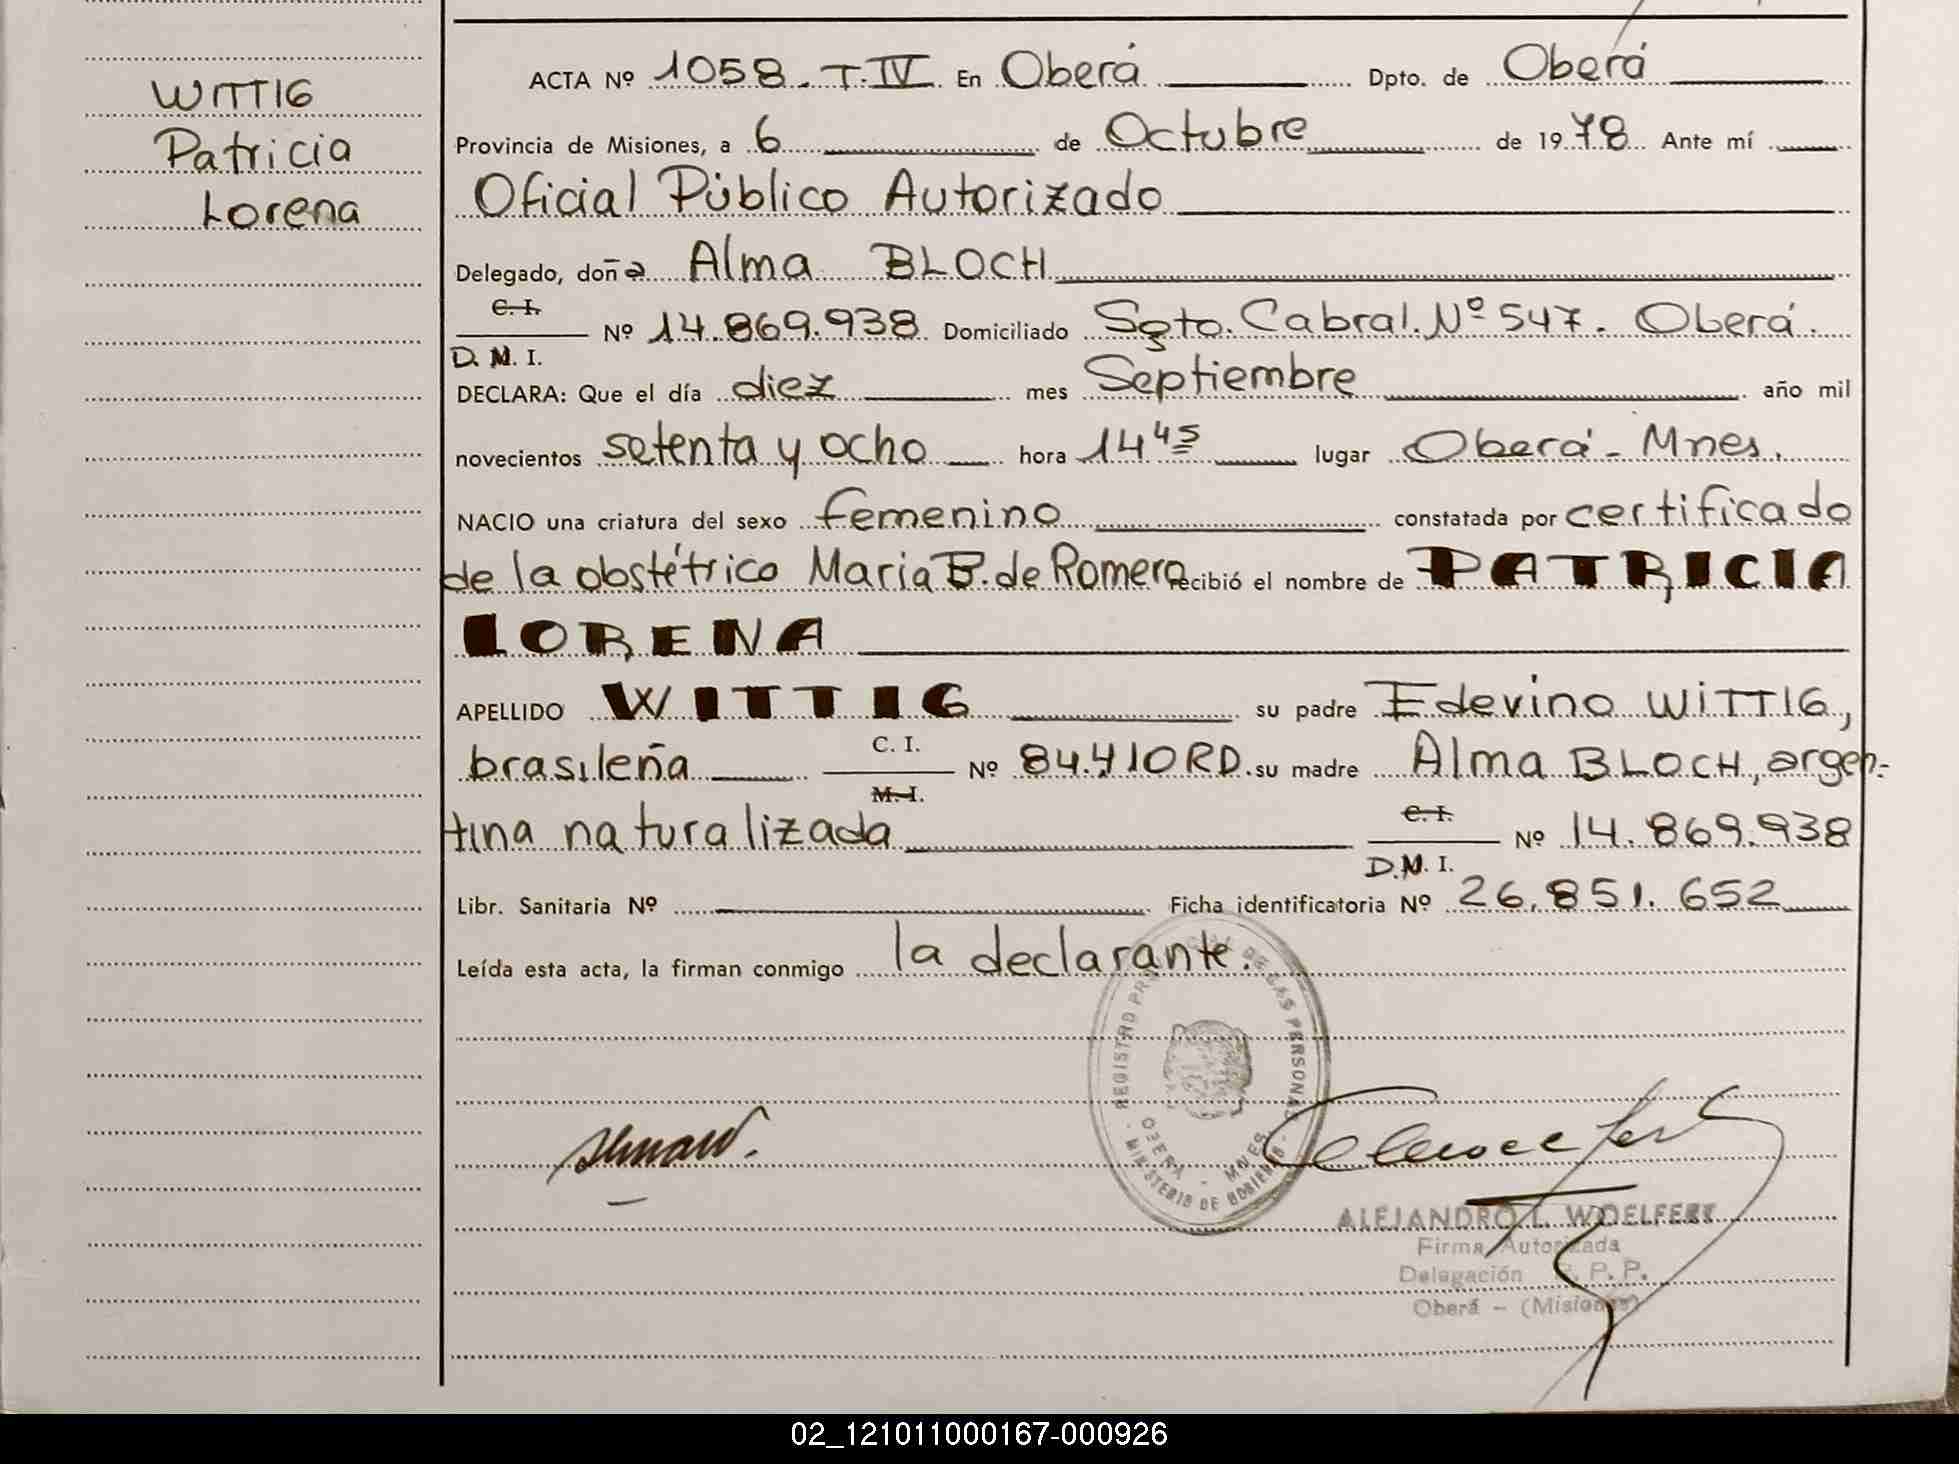 WITTIG
Patricia
Lorena
ACTA Nº 1058. T.IV En Oberá Dpto. de Oberá
Provincia de Misiones, a 6 de Octubre de 1978 Ante mí
Oficial Público Autorizado
Delegado, doña Alma BLOCH
C. I.
Nº 14.869.938 Domiciliado Sgto. Cabral. Nº 547. Oberá.
D. N. I.
DECLARA: Que el día diez mes Septiembre año mil
novecientos setenta y ocho hora 14 45 lugar Oberá - Mnes.
NACIO una criatura del sexo femenino constatada por certificado
de la obstétrico Maria B. de Romero recibió el nombre de PATRICIA
LORENA
APELLIDO WITTIG su padre Edevino WITTIG,
brasileña C. I. Nº 84.410RD. su madre Alma BLOCH, argen-
M. I.
tina naturalizada C. I. Nº 14.869.938
D.N. I.
Libr. Sanitaria Nº Ficha identificatoria Nº 26.851.652
Leída esta acta, la firman conmigo la declarante.
REGISTRO PROVINCIAL DE LAS PERSONAS
OBERA - MNES
MINISTERIO DE GOBIERNO
ALEJANDRO L. WOELFERT
Firma Autorizada
Delegación R. P. P.
Oberá - (Misiones)
02_121011000167-000926